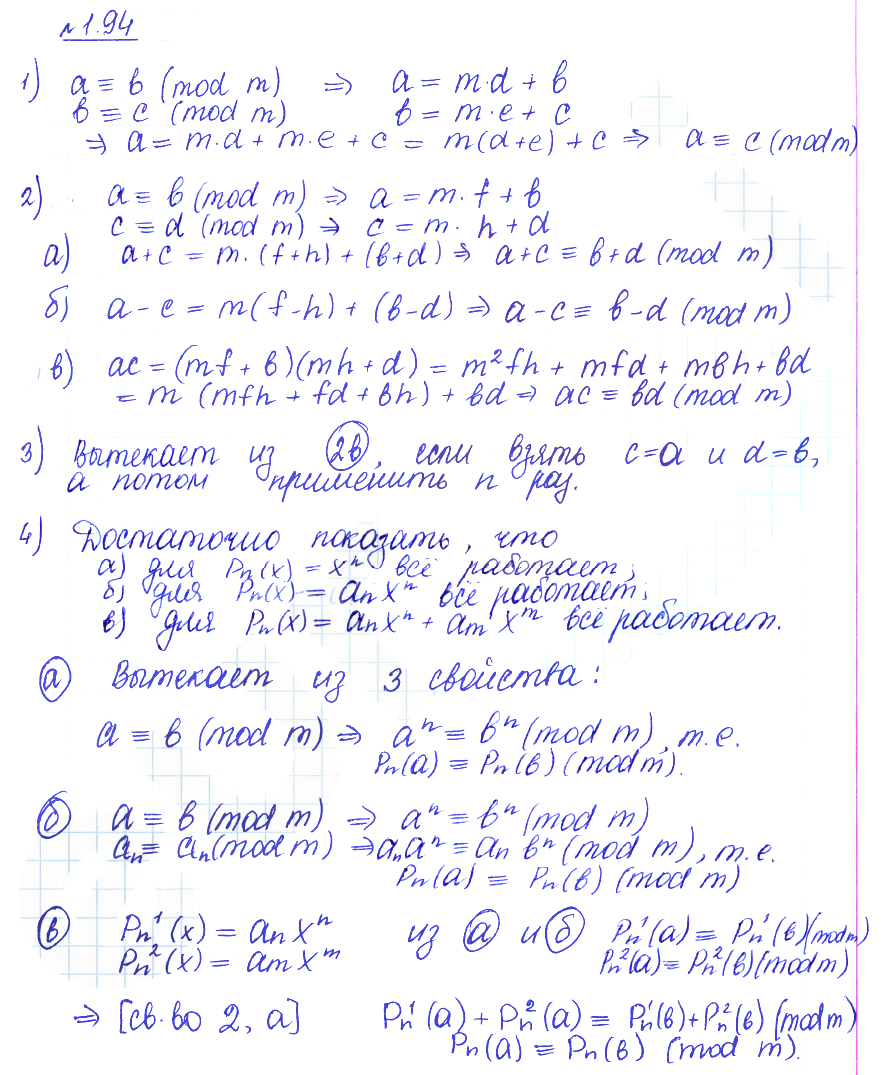 №1.94
1) a ≡ b (mod m) ⇒ a = m·d + b
b ≡ c (mod m) b = m·e + c
⇒ a = m·d + m·e + c = m(d+e) + c ⇒ a ≡ c (mod m)
2) a ≡ b (mod m) ⇒ a = m·f + b
c ≡ d (mod m) ⇒ c = m·h + d
а) a+c = m·(f+h) + (b+d) ⇒ a+c ≡ b+d (mod m)
б) a-c = m(f-h) + (b-d) ⇒ a-c ≡ b-d (mod m)
в) ac = (mf + b)(mh + d) = m²fh + mfd + mbh + bd
= m (mfh + fd + bh) + bd ⇒ ac ≡ bd (mod m)
3) Вытекает из 2в, если взять c=a и d=b,
а потом применить n раз.
4) Достаточно показать, что
а) для Pₙ(x) = xⁿ всё работает;
б) для Pₙ(x) = aₙxⁿ всё работает;
в) для Pₙ(x) = aₙxⁿ + aₘxᵐ всё работает.
а Вытекает из 3 свойства:
a ≡ b (mod m) ⇒ aⁿ ≡ bⁿ (mod m), т.е.
Pₙ(a) ≡ Pₙ(b) (mod m).
б a ≡ b (mod m) ⇒ aⁿ ≡ bⁿ (mod m)
aₙ ≡ aₙ (mod m) ⇒ aₙaⁿ ≡ aₙbⁿ (mod m), т.е.
Pₙ(a) ≡ Pₙ(b) (mod m)
в Pₙ¹(x) = aₙxⁿ из а и б Pₙ¹(a) ≡ Pₙ¹(b)(mod m)
Pₙ²(x) = aₘxᵐ Pₙ²(a) ≡ Pₙ²(b)(mod m)
⇒ [св-во 2, а] Pₙ¹(a) + Pₙ²(a) ≡ Pₙ¹(b)+Pₙ²(b) (mod m)
Pₙ(a) ≡ Pₙ(b) (mod m).